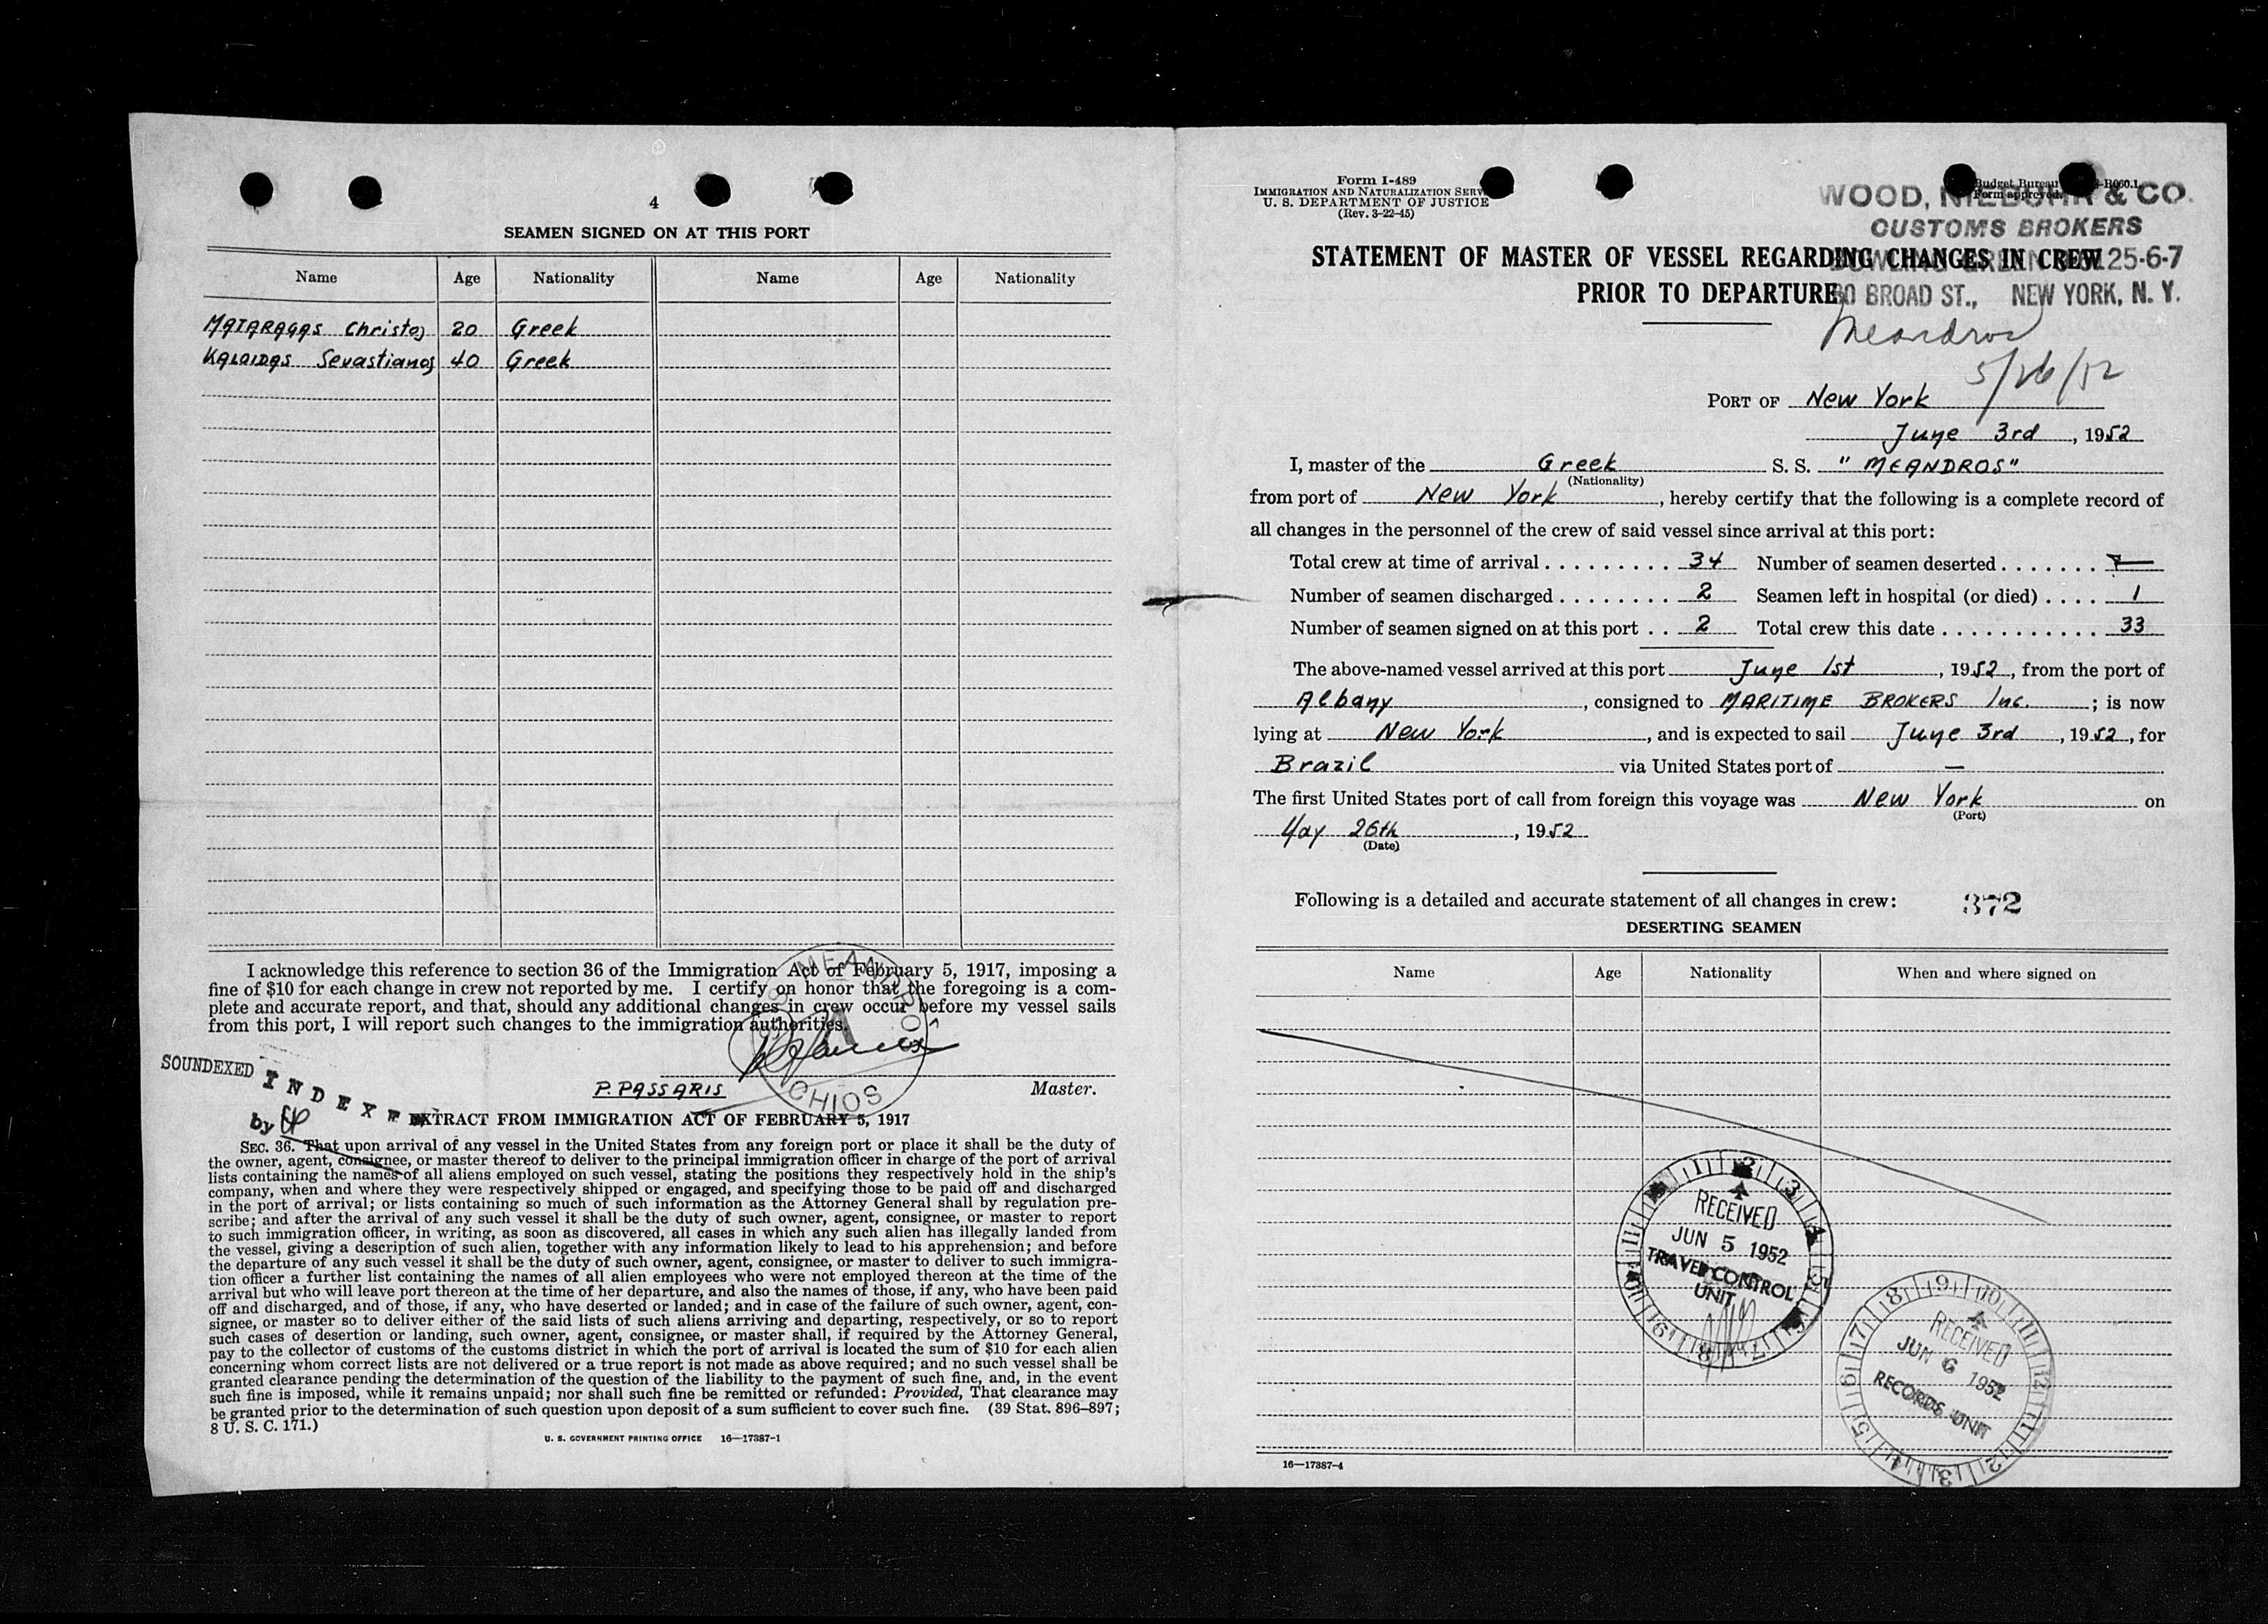 4
SEAMEN SIGNED ON AT THIS PORT
Name Age Nationality Name Age Nationality
MATARAGAS Christos 20 Greek
KALOIDAS Sevastianos 40 Greek
I acknowledge this reference to section 36 of the Immigration Act of February 5, 1917, imposing a
fine of $10 for each change in crew not reported by me. I certify on honor that the foregoing is a com-
plete and accurate report, and that, should any additional changes in crew occur before my vessel sails
from this port, I will report such changes to the immigration authorities.
MEANDROS
CHIOS
SOUNDEXED
INDEXED
by
P. PASSARIS Master.
EXTRACT FROM IMMIGRATION ACT OF FEBRUARY 5, 1917
SEC. 36. That upon arrival of any vessel in the United States from any foreign port or place it shall be the duty of
the owner, agent, consignee, or master thereof to deliver to the principal immigration officer in charge of the port of arrival
lists containing the names of all aliens employed on such vessel, stating the positions they respectively hold in the ship's
company, when and where they were respectively shipped or engaged, and specifying those to be paid off and discharged
in the port of arrival; or lists containing so much of such information as the Attorney General shall by regulation pre-
scribe; and after the arrival of any such vessel it shall be the duty of such owner, agent, consignee, or master to report
to such immigration officer, in writing, as soon as discovered, all cases in which any such alien has illegally landed from
the vessel, giving a description of such alien, together with any information likely to lead to his apprehension; and before
the departure of any such vessel it shall be the duty of such owner, agent, consignee, or master to deliver to such immigra-
tion officer a further list containing the names of all alien employees who were not employed thereon at the time of the
arrival but who will leave port thereon at the time of her departure, and also the names of those, if any, who have been paid
off and discharged, and of those, if any, who have deserted or landed; and in case of the failure of such owner, agent, con-
signee, or master so to deliver either of the said lists of such aliens arriving and departing, respectively, or so to report
such cases of desertion or landing, such owner, agent, consignee, or master shall, if required by the Attorney General,
pay to the collector of customs of the customs district in which the port of arrival is located the sum of $10 for each alien
concerning whom correct lists are not delivered or a true report is not made as above required; and no such vessel shall be
granted clearance pending the determination of the question of the liability to the payment of such fine, and, in the event
such fine is imposed, while it remains unpaid; nor shall such fine be remitted or refunded: Provided, That clearance may
be granted prior to the determination of such question upon deposit of a sum sufficient to cover such fine. (39 Stat. 896–897;
8 U. S. C. 171.)
U. S. GOVERNMENT PRINTING OFFICE 16—17387-1
Form I-489
IMMIGRATION AND NATURALIZATION SERV
U. S. DEPARTMENT OF JUSTICE
(Rev. 3-22-45)
Budget Bureau -R060.1.
Form approved.
WOOD, NIEBUHR & CO.
CUSTOMS BROKERS
BOWLING GREEN 125-6-7
BROAD ST., NEW YORK, N. Y.
STATEMENT OF MASTER OF VESSEL REGARDING CHANGES IN CREW
PRIOR TO DEPARTURE
Meandros
5/26/52
PORT OF New York
June 3rd, 1952
I, master of the Greek S. S. "MEANDROS"
(Nationality)
from port of New York, hereby certify that the following is a complete record of
all changes in the personnel of the crew of said vessel since arrival at this port:
Total crew at time of arrival . . . . . . . . . 34 Number of seamen deserted . . . . . . . —
Number of seamen discharged . . . . . . . . 2 Seamen left in hospital (or died) . . . . 1
Number of seamen signed on at this port . . 2 Total crew this date . . . . . . . . . . . 33
The above-named vessel arrived at this port June 1st, 1952, from the port of
Albany, consigned to MARITIME BROKERS Inc.; is now
lying at New York, and is expected to sail June 3rd, 1952, for
Brazil via United States port of —
The first United States port of call from foreign this voyage was New York on
(Port)
May 26th, 1952
(Date)
Following is a detailed and accurate statement of all changes in crew: 372
DESERTING SEAMEN
Name Age Nationality When and where signed on
RECEIVED
JUN 5 1952
TRAVEL CONTROL
UNIT
RECEIVED
JUN 6 1952
RECORDS UNIT
16—17387-4